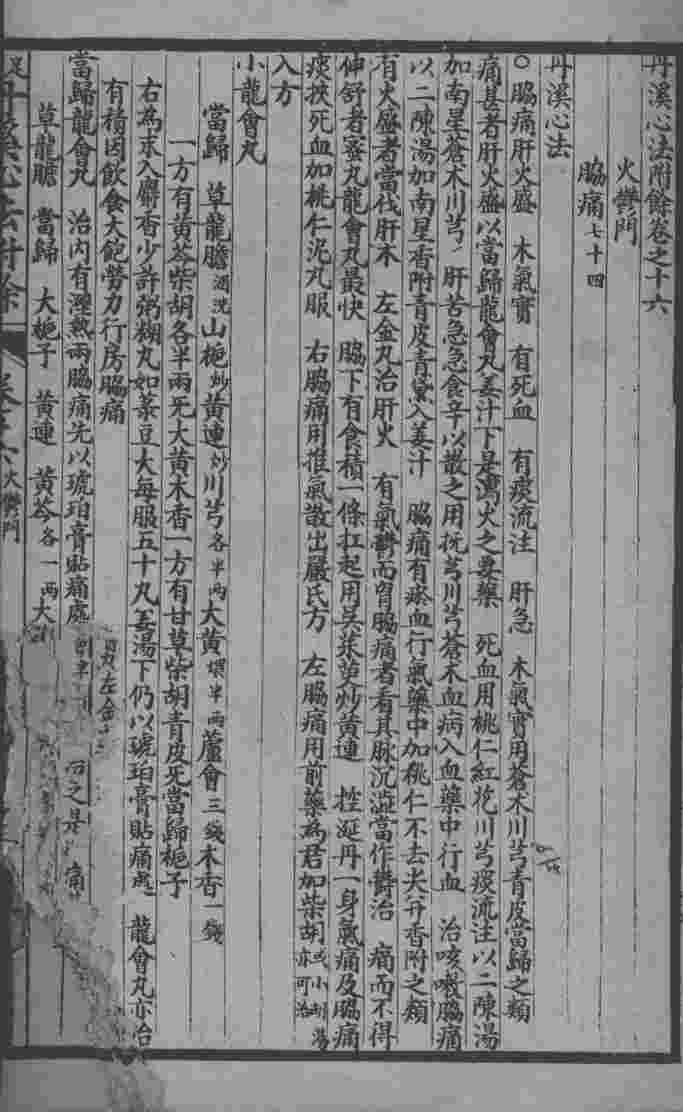 丹溪心法附餘卷之十六
火鬱門
脇痛七十四
丹溪心法
○脇痛肝火盛 木氣實 有死血 有痰流注 肝急 木氣實用蒼木川芎青皮當歸之類
痛甚者肝火盛以當歸龍會丸姜汁下是瀉火之要藥 死血用桃仁紅花川芎痰流注以二陳湯
加南星蒼木川芎 肝苦急急食辛以散之用抚芎川芎蒼木血病入血藥中行血 治咳嗽脇痛
以二陳湯加南星香附青皮青黛入姜汁 脇痛有瘀血行氣藥中加桃仁不去尖并香附之類
有火盛者當伐肝木 左金丸治肝火 有氣鬱而胃脇痛者看其脉沉澁當作鬱治 痛而不得
伸舒者蜜丸龍會丸最快 脇下有食積一條扛起用吳茱萸炒黄連 控涎丹一身氣痛及脇痛
痰挾死血加桃仁泥丸服 右脇痛用推氣散出嚴氏方 左脇痛用前藥為君加柴胡或小胡湯亦可治
入方
小龍會丸
當歸 草龍膽酒洗山梔炒黄連炒川芎各半兩大黄煨半兩蘆會三錢木香一錢
一方有黄芩柴胡各半兩无大黄木香一方有甘草柴胡青皮无當歸梔子
右為末入麝香少許粥糊丸如菉豆大每服五十丸姜湯下仍以琥珀膏貼痛處 龍會丸亦治
有積因飲食大飽勞力行房脇痛
當歸龍會丸 治内有濕熱兩脇痛先以琥珀膏貼痛處
草龍膽 當歸 大梔子 黄連 黄芩各一兩大
丹溪心法附餘 火鬱門